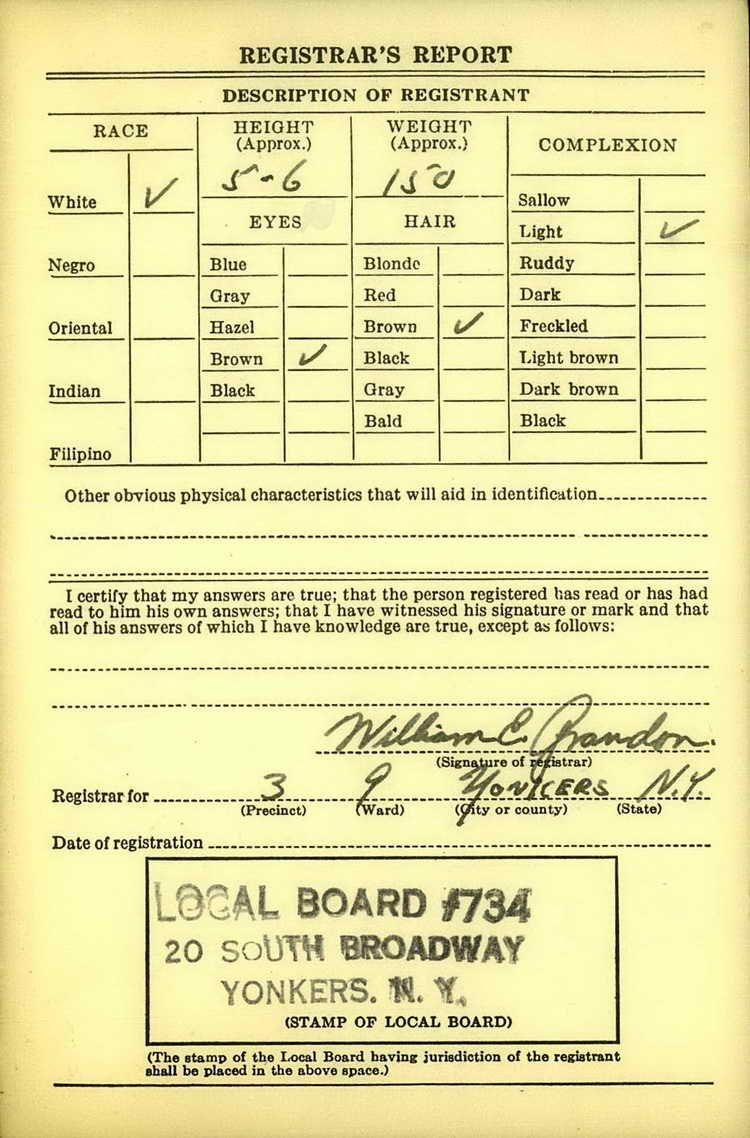 REGISTRAR'S REPORT
DESCRIPTION OF REGISTRANT
RACE
HEIGHT
(Approx.)
WEIGHT
(Approx.)
COMPLEXION
5-6
150
White ✓
EYES
HAIR
Sallow
Light ✓
Negro
Blue
Blonde
Ruddy
Gray
Red
Dark
Oriental
Hazel
Brown ✓
Freckled
Brown ✓
Black
Light brown
Indian
Black
Gray
Dark brown
Bald
Black
Filipino
Other obvious physical characteristics that will aid in identification
I certify that my answers are true; that the person registered has read or has had
read to him his own answers; that I have witnessed his signature or mark and that
all of his answers of which I have knowledge are true, except as follows:
William C.
(Signature of registrar)
Registrar for 3 9 YONKERS N.Y.
(Precinct) (Ward) (City or county) (State)
Date of registration
LOCAL BOARD #734
20 SOUTH BROADWAY
YONKERS. N. Y.
(STAMP OF LOCAL BOARD)
(The stamp of the Local Board having jurisdiction of the registrant
shall be placed in the above space.)